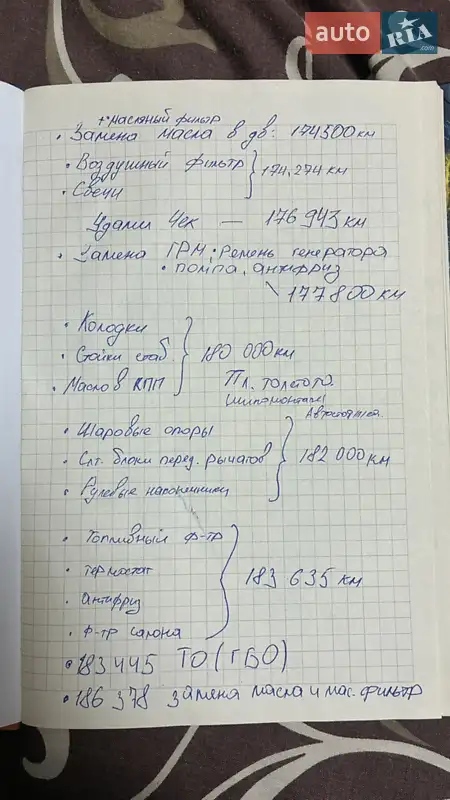 auto RIA .com
+ масляный фильтр
• Замена масла в дв: 174500 км
• Воздушный фильтр
• Свечи
174.274 км
Удали Чек — 176 943 км
• Замена ГРМ, • Ремень генератора
• помпа, антифриз
177800 км
• Колодки
• Стойки стаб.
• Масло в КПП
180 000 км
Пл. Толстого.
(шиномонтаж)
Автостоянка
• Шаровые опоры
• Слт. блоки перед. рычагов
• Рулевые наконечники
182 000 км
• Топливный ф-тр
• термостат
• антифриз
• ф-тр салона
183 635 км
• 183 445 ТО (ГБО)
• 186 378 замена масла и мас. фильтр